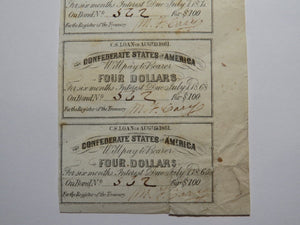 For six months Interest Due July 1
On Bond No. 362 for $100
For the Register of the Treasury
C.S. LOAN OF AUG. 19, 1861.
CONFEDERATE STATES OF AMERICA
Will pay to Bearer
FOUR DOLLARS
For six months Interest Due July 1 1868
On Bond No. 362 for $100
For the Register of the Treasury
C.S. LOAN OF AUG. 19, 1861.
CONFEDERATE STATES OF AMERICA
Will pay to Bearer
FOUR DOLLARS
For six months Interest Due
On Bond No. 362 for $100
For the Register of the Treasury